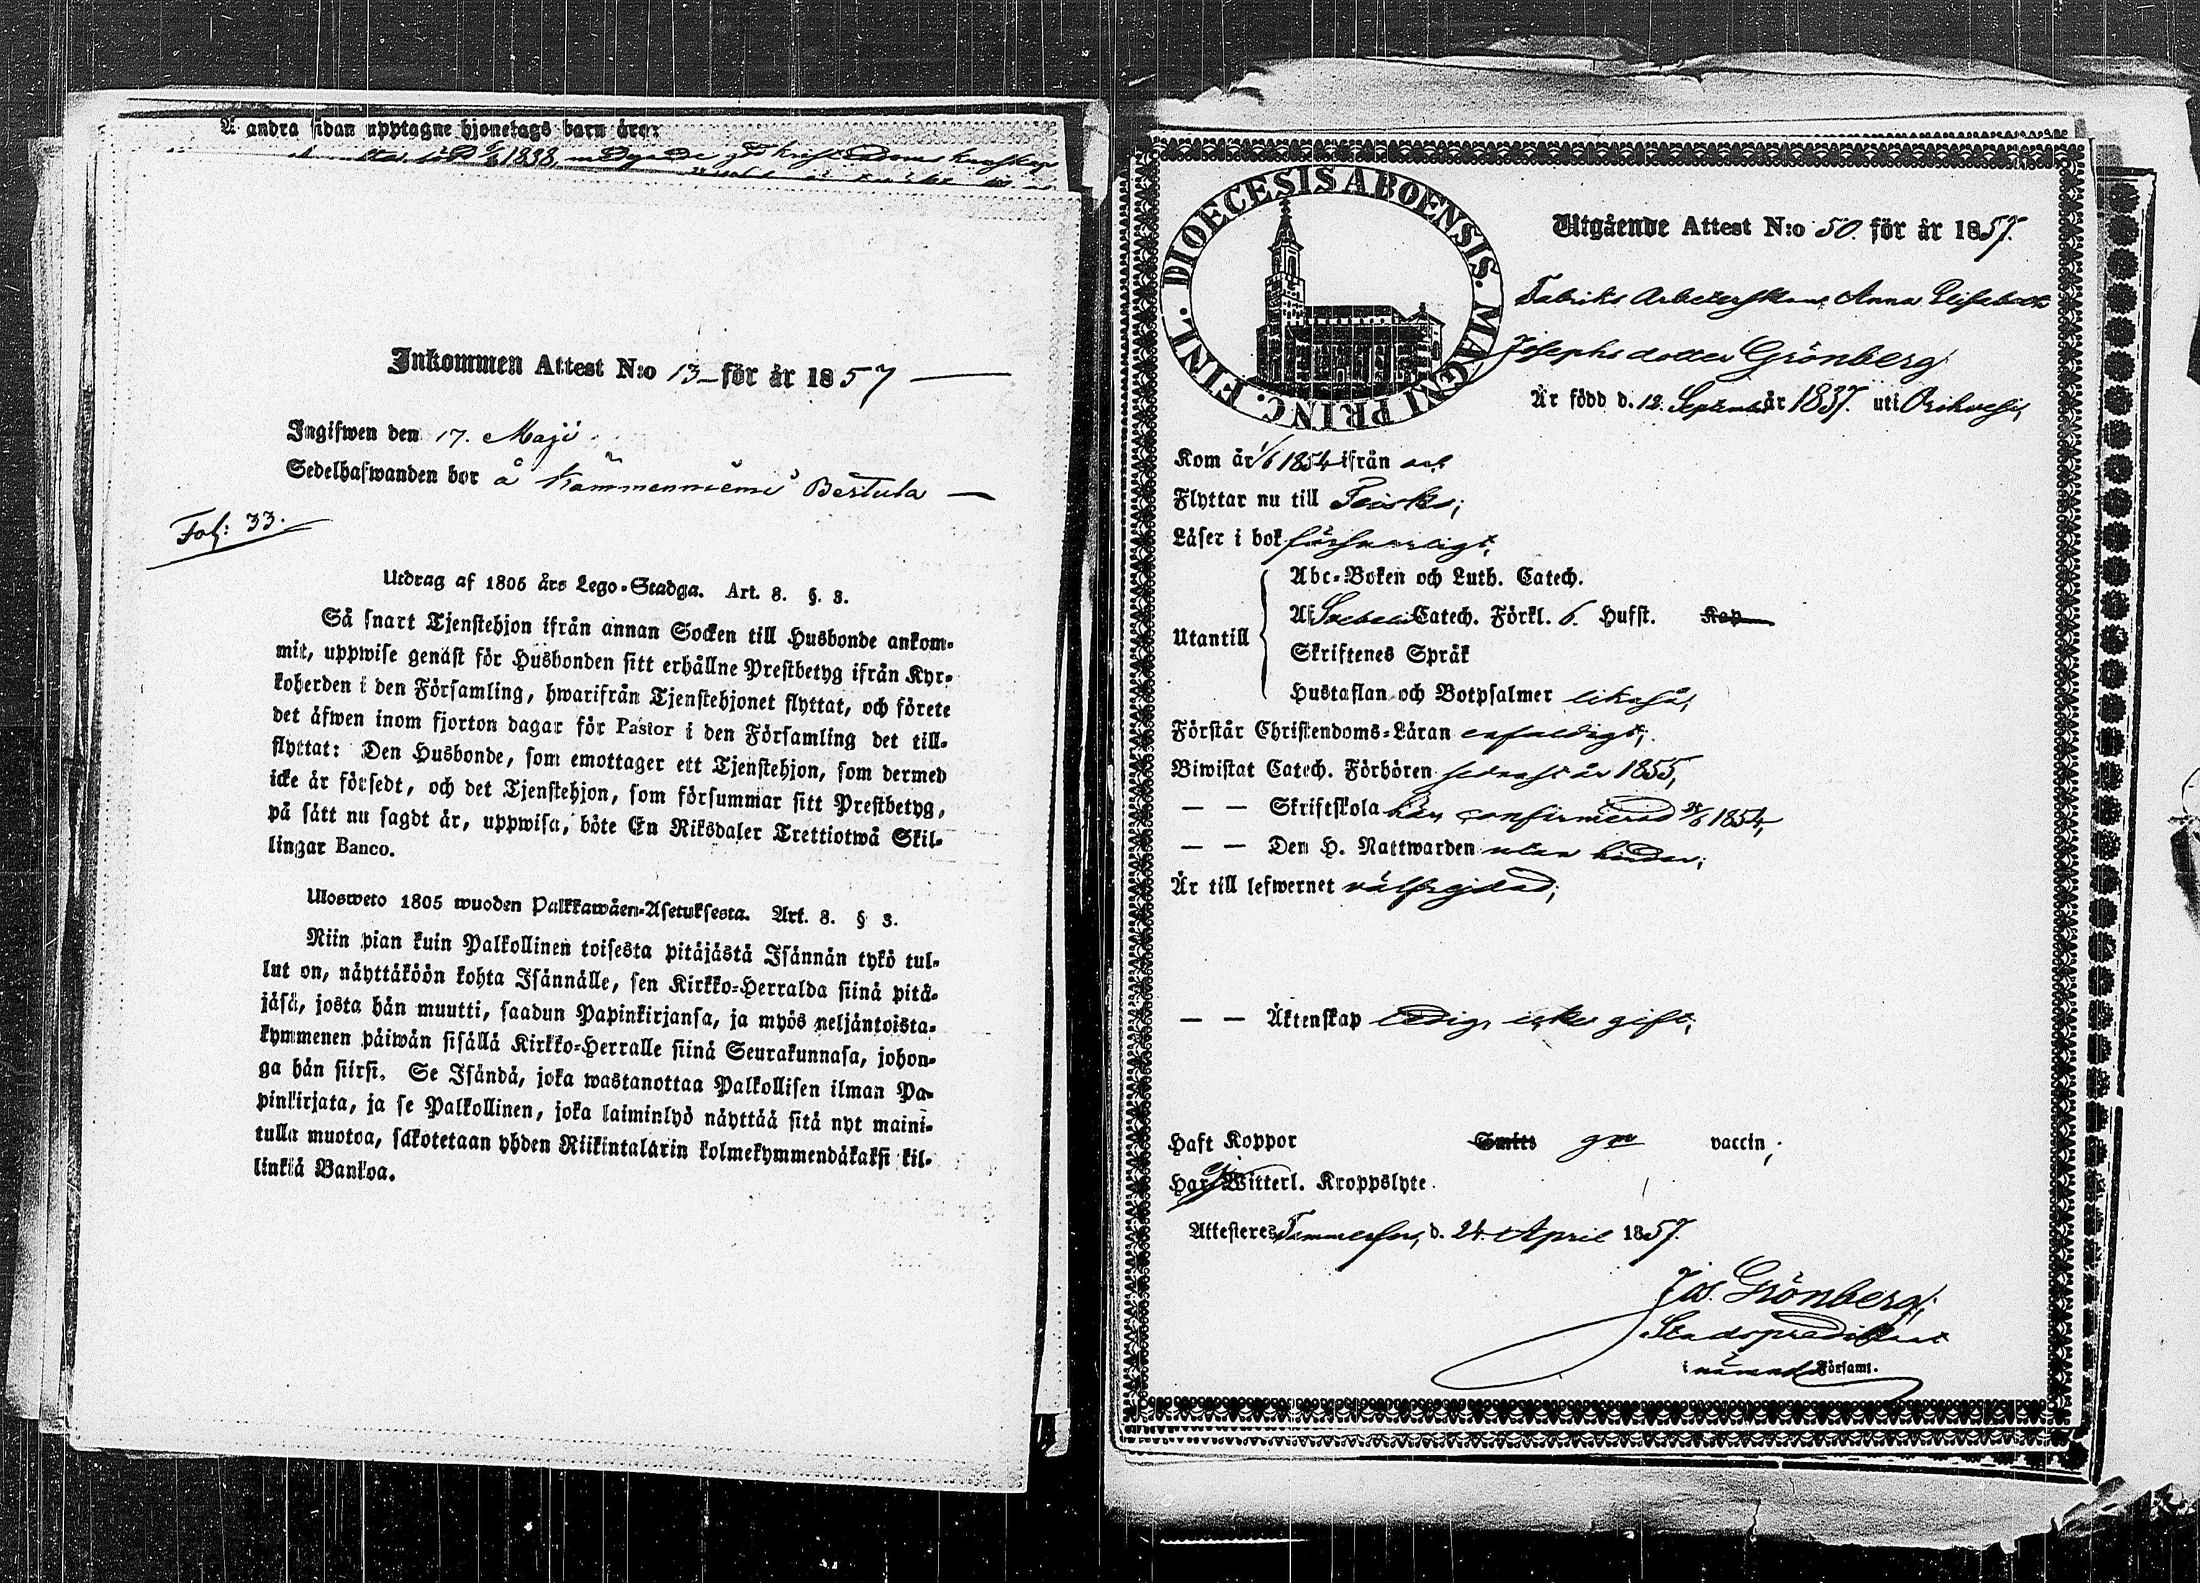 Å andra sidan upptagne hjonelags barn äro:
1838,
Inkommen Attest N:o 13 – för år 1857 —
Ingifwen den 17. Maji.
Sedelhafwanden bor å Kämmenniemi Bertula —
Fol: 33.
Utdrag af 1805 års Lego-Stadga. Art. 8. §. 3.
Så snart Tjenstehjon ifrån annan Socken till Husbonde ankom-
mit, uppwise genäst för Husbonden sitt erhållne Prestbetyg ifrån Kyr-
koherden i den Församling, hwarifrån Tjenstehjonet flyttat, och förete
det äfwen inom fjorton dagar för Pastor i den Församling det till-
flyttat: Den Husbonde, som emottager ett Tjenstehjon, som dermed
icke är försedt, och det Tjenstehjon, som försummar sitt Prestbetyg,
på sätt nu sagdt är, uppwisa, böte En Riksdaler Trettiotwå Skil-
lingar Banco.
Ulosweto 1805 wuoden Palkkawäen-Asetuksesta. Art. 8. § 3.
Niin pian kuin Palkollinen toisesta pitäjästä Isännän tykö tul-
lut on, näyttäköön kohta Isännälle, sen Kirkko-Herralda siinä pitä-
jäsä, josta hän muutti, saadun Papinkirjansa, ja myös neljäntoista-
kymmenen päiwän sisällä Kirkko-Herralle siinä Seurakunnasa, johon-
ga hän siirsi. Se Isändä, joka wastanottaa Palkollisen ilman Pa-
pinkirjata, ja se Palkollinen, joka laiminlyö näyttää sitä nyt maini-
tulla muotoa, sakotetaan yhden Riikintalarin kolmekymmendäkaksi kil-
linkiä Bankoa.
DIOECESIS ABOENSIS. MAGNI PRINC. FINL.
Utgående Attest N:o 50. för år 1857.
Fabriks Arbeterskan Anna Elisabeth
Josephs dotter Grönberg
Är född d. 12. September år 1837. uti Orihvesi;
Kom år 1/6 1854 ifrån
Flyttar nu till Teisko;
Läser i bok försvarligt;
Utantill
Abc-Boken och Luth. Catech.
Af Svebelii Catech. Förkl. 6. Hufst. Kap
Skriftenes Språk
Hustaflan och Botpsalmer likaså;
Förstår Christendoms-Läran enfaldigt;
Biwistat Catech. Förhören sednast år 1855,
— — Skriftskola här, confirmerad /6 1854,
— — Den H. Nattwarden utan hinder;
Är till lefwernet välfrejdad;
— — Äktenskap ledig, icke gift;
Haft Koppor Smitt gm vaccin;
Har ej Witterl. Kroppslyte
Attesteres Tammerfors, d. 24. April 1857.
Jos. Grönberg,
Stadspredikant
i nämnde Församl.